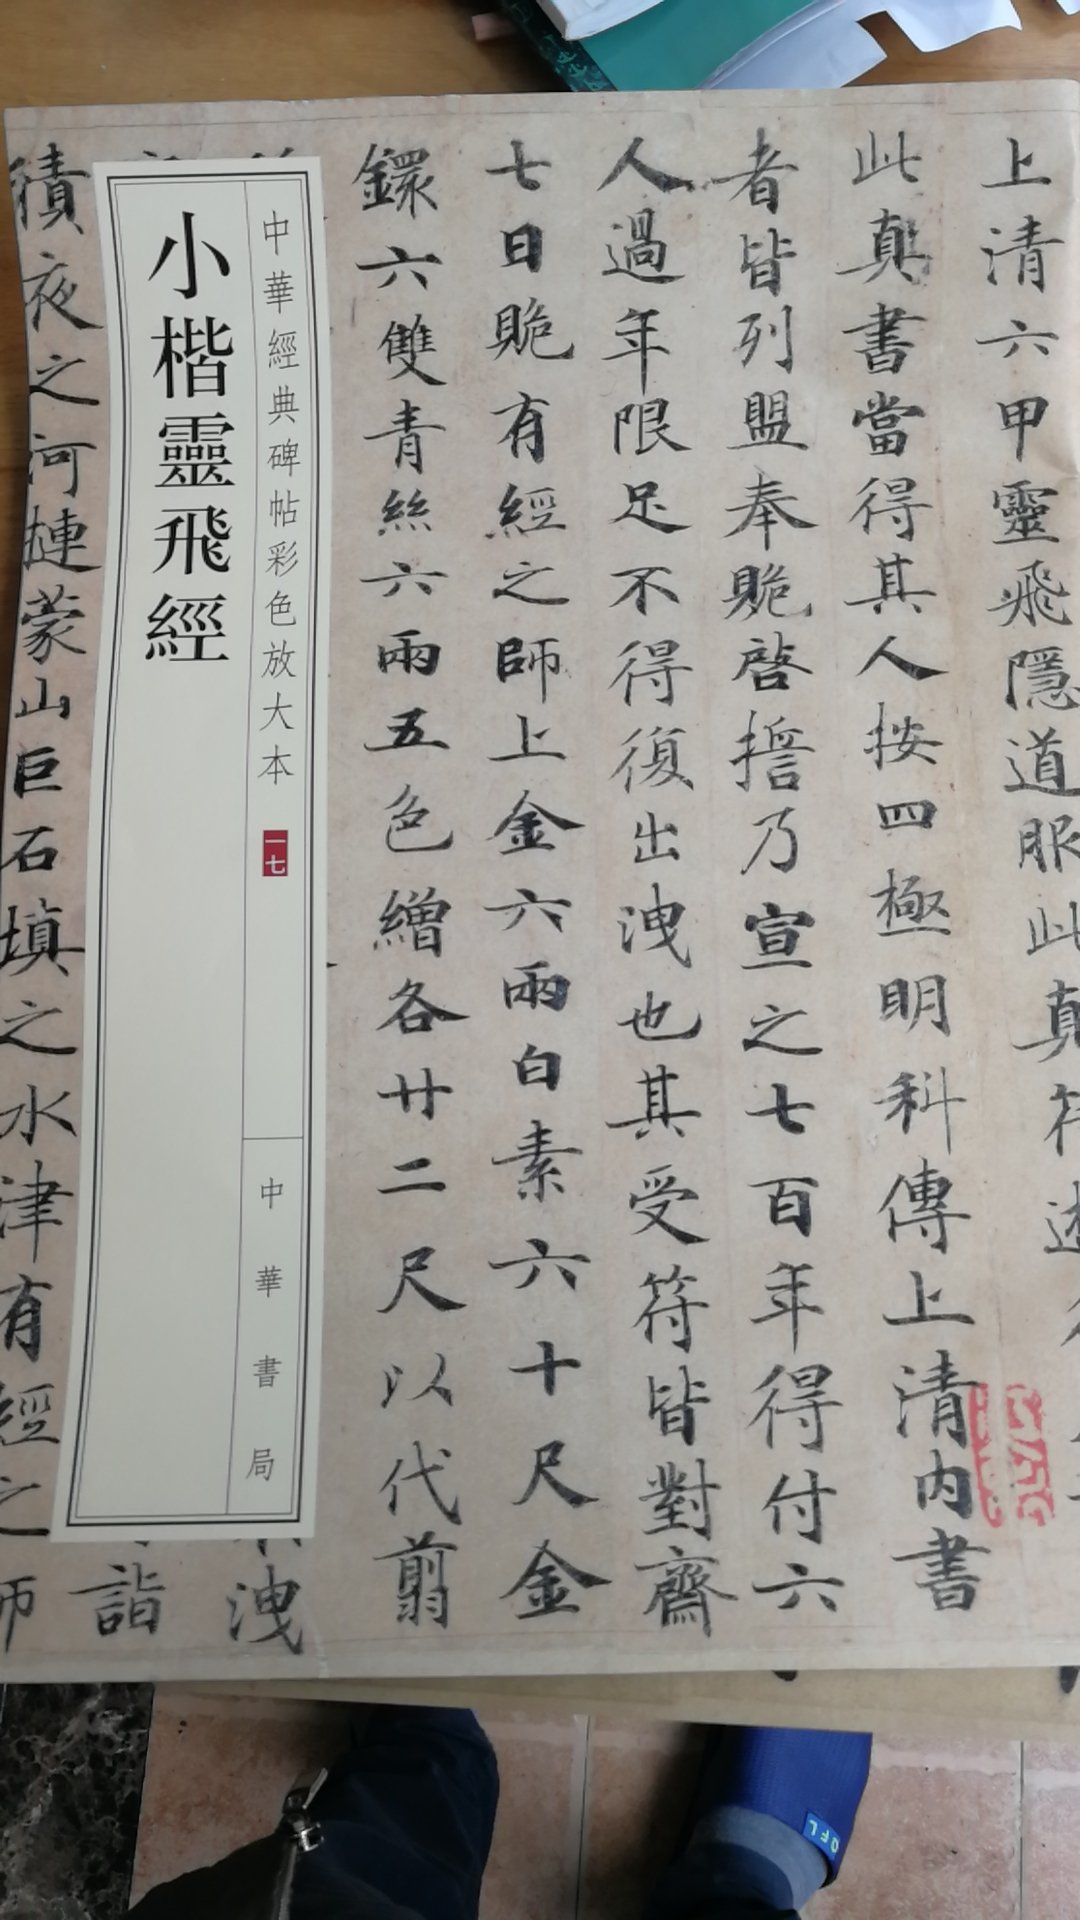 上清六甲靈飛隱道服此真符遊
此真書當得其人按四極明科傳上清內書
者皆列盟奉跪啓擔乃宣之七百年得付六
人過年限足不得復出洩也其受符皆對齋
七日跪有經之師上金六兩白素六十尺金
鐶六雙青絲六兩五色繒各廿二尺以代翦
洩
詣
積夜之河揵蒙山巨石填之水津有經之師
中華經典碑帖彩色放大本
一七
中華書局
小楷靈飛經